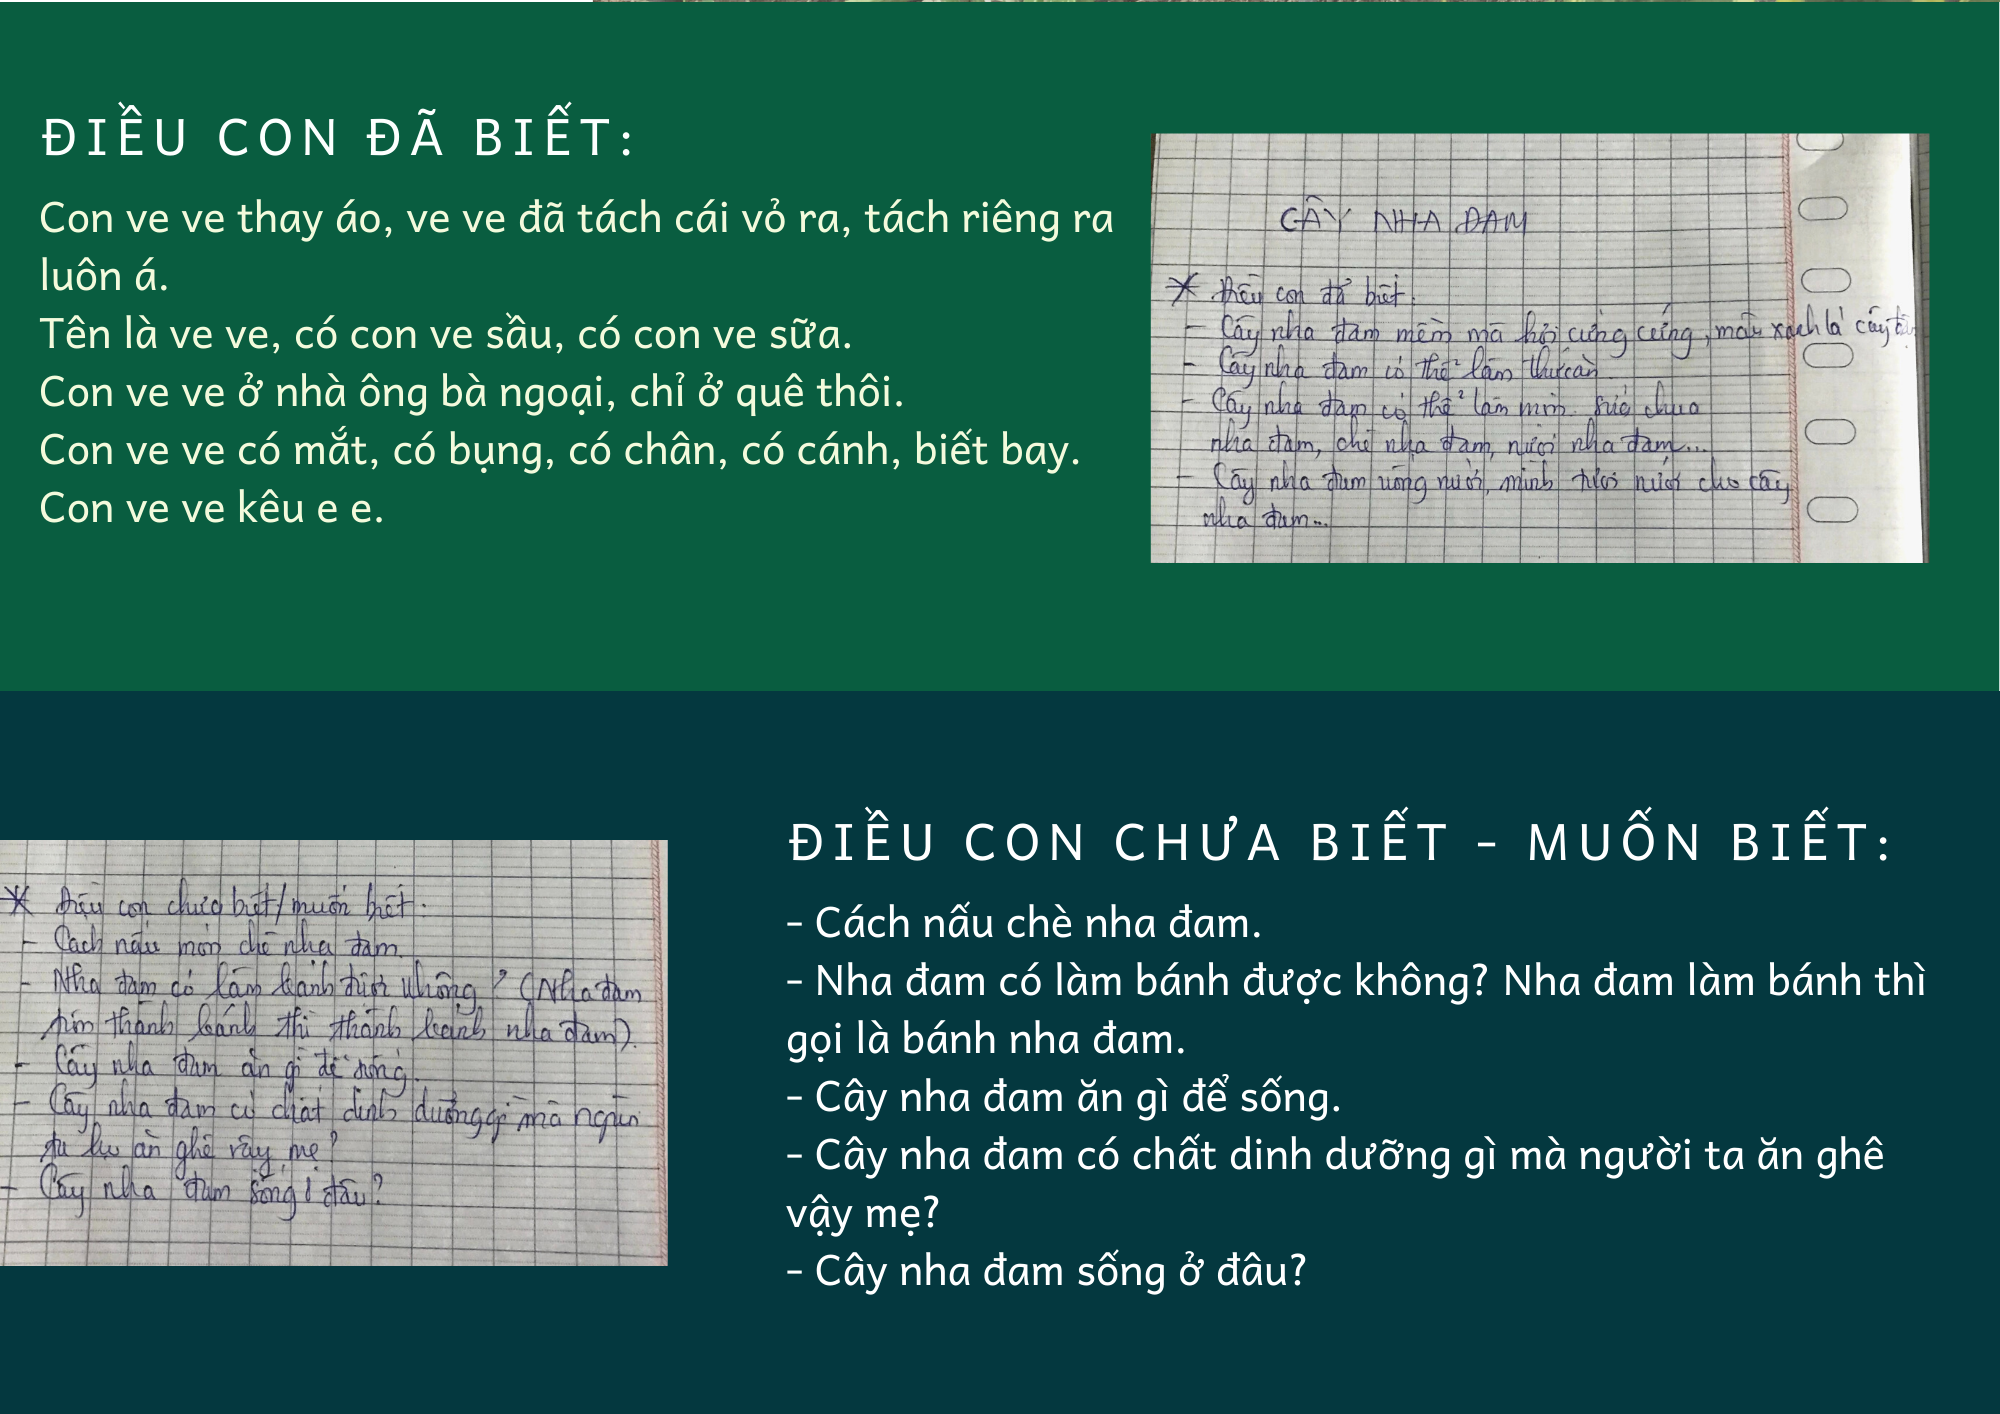 ĐIỀU CON ĐÃ BIẾT:
Con ve ve thay áo, ve ve đã tách cái vỏ ra, tách riêng ra
luôn á.
Tên là ve ve, có con ve sầu, có con ve sữa.
Con ve ve ở nhà ông bà ngoại, chỉ ở quê thôi.
Con ve ve có mắt, có bụng, có chân, có cánh, biết bay.
Con ve ve kêu e e.
CÂY NHA ĐAM
* Điều con đã biết:
- Cây nha đam mềm mà hơi cứng cứng, màu xanh lá cây
- Cây nha đam có thể làm thức ăn.
- Cây nha đam có thể làm món sữa chua
nha đam, chè nha đam, nước nha đam...
- Cây nha đam uống nước, mình tưới nước cho cây
nha đam...
* Điều con chưa biết/muốn biết:
- Cách nấu món chè nha đam.
- Nha đam có làm bánh được không? (Nha đam
thành bánh thì thành bánh nha đam).
- Cây nha đam ăn gì để sống.
- Cây nha đam có chất dinh dưỡng gì mà người
ta ăn ghê vậy mẹ?
- Cây nha đam sống ở đâu?
ĐIỀU CON CHƯA BIẾT - MUỐN BIẾT:
- Cách nấu chè nha đam.
- Nha đam có làm bánh được không? Nha đam làm bánh thì
gọi là bánh nha đam.
- Cây nha đam ăn gì để sống.
- Cây nha đam có chất dinh dưỡng gì mà người ta ăn ghê
vậy mẹ?
- Cây nha đam sống ở đâu?